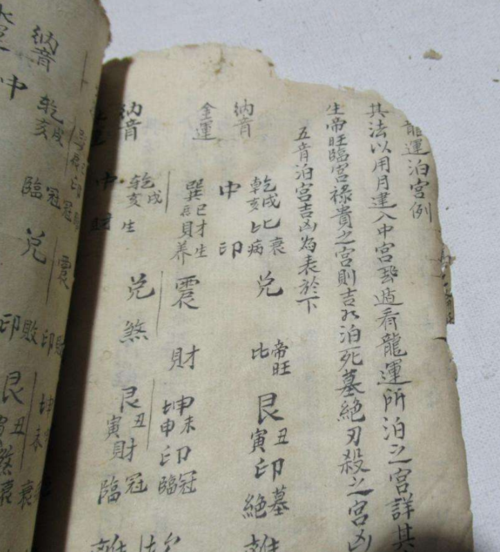 龍運泊宮例
其法以用月建入中宮飛遁看龍運所泊之宮詳其
生帝旺臨官祿貴之宮則吉如泊死墓絕刃殺之宮凶
五音泊宮吉凶為表於下
納音 乾戌亥 比 衰病 兌 比 帝旺 艮丑寅 印 墓絕 離
金運 中 印
巽 巳 財 生養 震 財 坤未申 印 冠臨
納音 乾戌亥 生 兌 煞 艮丑寅 財 冠臨 離
中 財
納音 乾戌亥 冠臨 兌 印 敗 艮丑寅 煞 衰
中 震 印 坤未